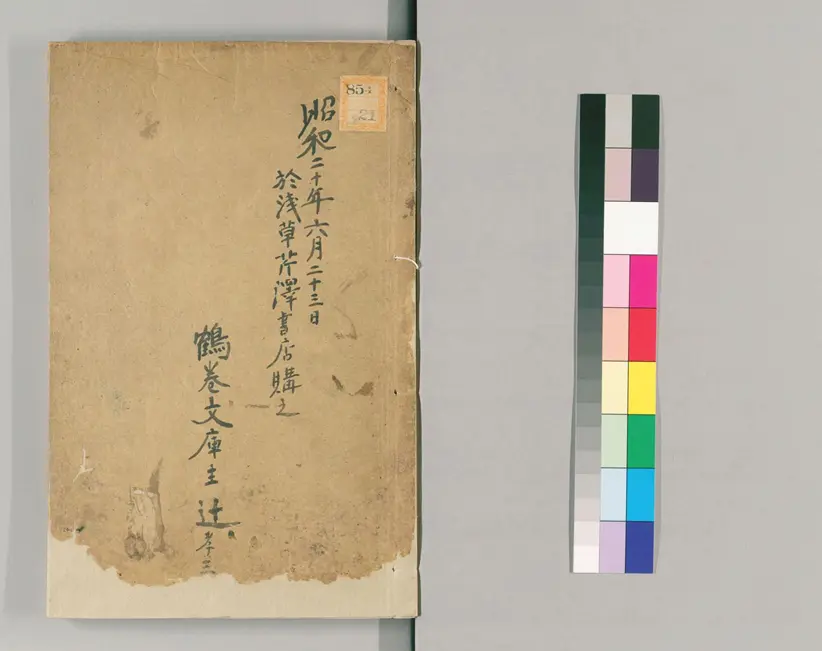 昭和二十年六月二十三日
於浅草芹澤書店購之
鶴巻文庫主 辻孝三
21